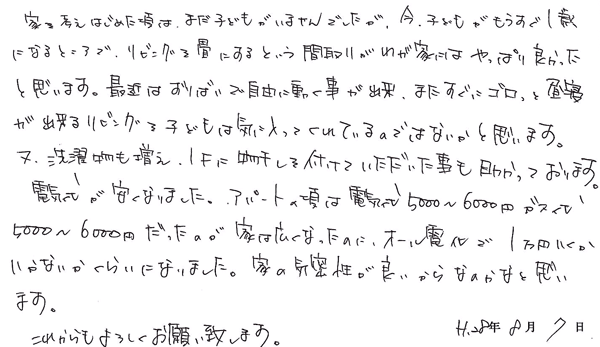 家を考えはじめた頃は、まだ子どもがいませんでしたが、今、子どもがもうすぐ1歳
になるところで、リビングを畳にするという間取りがわが家にはやっぱり良かった
と思います。最近はずりばいで自由に動く事が出来、またすぐにゴロっと昼寝
が出来るリビングを子どもは気に入ってくれているのではないかと思います。
又、洗濯物も増え、1Fに物干しを付けていただいた事も助かっております。
電気代が安くなりました。アパートの頃は電気代5000～6000円ガス代
5000～6000円だったのが家は広くなったのに、オール電化で1万円いくか
いかないかくらいになりました。家の気密性が良いからなのかなと思い
ます。
これからもよろしくお願い致します。
H.28年 8月 7日